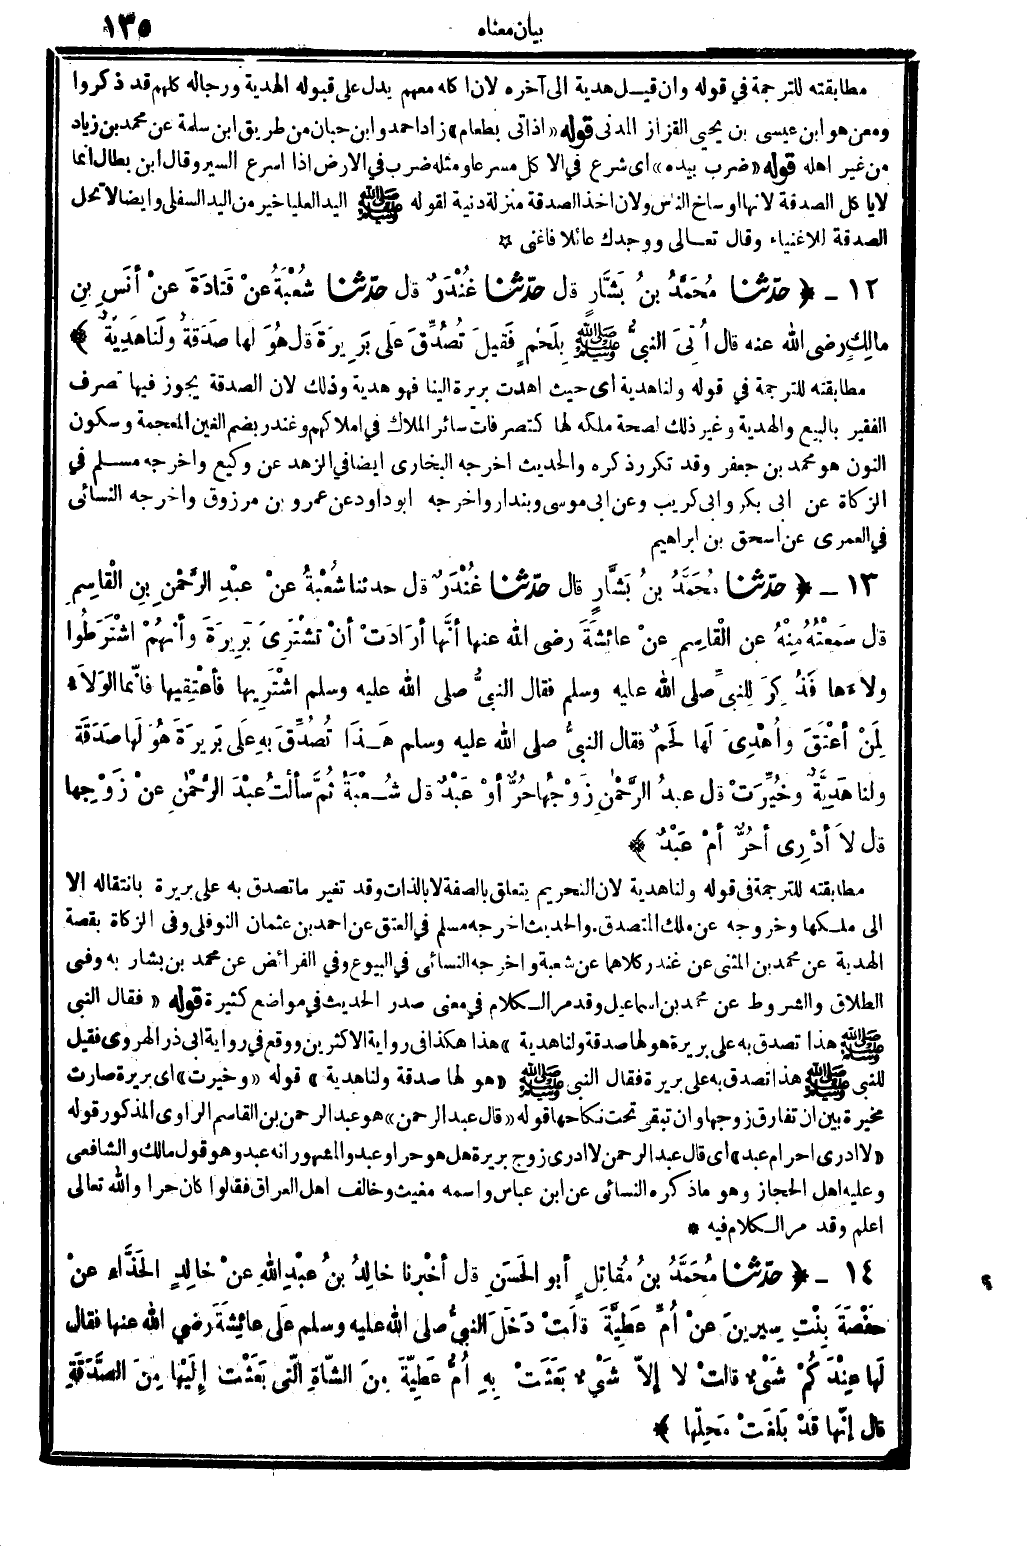 بيان معناه ١٣٥
مطابقته للترجمة في قوله وان قيل هدية الى آخره لان اكله معهم يدل على قبوله الهدية ورجاله كلهم قد ذكروا
ومعن هو ابن عيسى بن يحيى القزاز المدنى قوله «اذا اتى بطعام» زاد احمد وابن حبان من طريق ابن سلمة عن محمد بن زياد
من غير اهله قوله «ضرب بيده» اى شرع في الاكل مسرعا ومثله ضرب في الارض اذا اسرع السير وقال ابن بطال انما
لا يأكل الصدقة لانها اوساخ الناس ولان اخذ الصدقة منزلة دنية لقوله ﷺ اليد العليا خير من اليد السفلى وايضا لا تحل
الصدقة للاغنياء وقال تعالى ووجدك عائلا فاغنى ☆
١٢ - ﴿ حدّثنا مُحَمَّدُ بنُ بَشَّارٍ قال حدّثنا غُنْدَرٌ قال حدّثنا شُعْبَةُ عنْ قَتَادَةَ عنْ أنَسِ بنِ
مالِكٍ رضى الله عنه قال أُتِىَ النبىُّ ﷺ بِلَحْمٍ فَقِيلَ تُصُدِّقَ عَلَى بَرِيرَةَ قال هُوَ لها صَدَقَةٌ ولَنا هَدِيَّةٌ ﴾
مطابقته للترجمة في قوله ولنا هدية أى حيث اهدت بريرة الينا فهو هدية وذلك لان الصدقة يجوز فيها تصرف
الفقير بالبيع والهدية وغير ذلك لصحة ملكه لها كتصرفات سائر الملاك في املاكهم وغندر بضم الغين المعجمة وسكون
النون هو محمد بن جعفر وقد تكرر ذكره والحديث اخرجه البخارى ايضا في الزهد عن وكيع واخرجه مسلم في
الزكاة عن ابى بكر وابى كريب وعن ابى موسى وبندار واخرجه ابو داود عن عمرو بن مرزوق واخرجه النسائى
في العمرى عن اسحق بن ابراهيم
١٣ - ﴿ حدّثنا مُحَمَّدُ بنُ بَشَّارٍ قال حدّثنا غُنْدَرٌ قال حدثنا شُعْبَةُ عنْ عبْدِ الرَّحْمٰنِ بنِ الْقَاسِمِ
قال سَمِعْتُهُ مِنْهُ عن الْقَاسِمِ عنْ عائشَةَ رضى الله عنها أنَّها أرَادَتْ أنْ تشْتَرِىَ بَرِيرَةَ وأنَّهُمْ اشْتَرَطُوا
ولاءَها فَذُكِرَ لِلنبىِّ صلى الله عليه وسلم فقال النبىُّ صلى الله عليه وسلم اشْتَرِيها فأعْتِقِيها فانَّما الوَلاَءُ
لِمَنْ أعْتَقَ وأُهْدِىَ لَها لَحْمٌ فقال النبىُّ صلى الله عليه وسلم هَـذَا تُصُدِّقَ بهِ علَى بَرِيرَةَ هُوَ لَها صَدَقَةٌ
ولنا هَدِيَّةٌ وخُيِّرَتْ قال عبدُ الرَّحْمٰنِ زَوْجُها حُرٌّ أوْ عَبْدٌ قال شُـعْبَةُ ثُمَّ سألْتُ عبْدَ الرَّحْمٰنِ عنْ زَوْجِها
قال لاَ أدْرِى أحُرٌّ أمْ عَبْدٌ ﴾
مطابقته للترجمة في قوله ولنا هدية لان التحريم يتعلق بالصفة لا بالذات وقد تغير ما تصدق به على بريرة بانتقاله الا
الى ملكها وخروجه عن ملك المتصدق. والحديث اخرجه مسلم في العتق عن احمد بن عثمان النوفلى وفى الزكاة بقصة
الهدية عن محمد بن المثنى عن غندر كلاهما عن شعبة واخرجه النسائى في البيوع وفي الفرائض عن محمد بن بشار به وفى
الطلاق والشروط عن محمد بن اسماعيل وقد مر الكلام في معنى صدر الحديث في مواضع كثيرة قوله « فقال النبى
ﷺ هذا تصدق به على بريرة هو لها صدقة ولنا هدية » هذا هكذا فى رواية الاكثرين ووقع في رواية ابى ذر الهروى فقيل
للنبى ﷺ هذا تصدق به على بريرة فقال النبى ﷺ «هو لها صدقة ولنا هدية » قوله «وخيرت» اى بريرة صارت
مخيرة بين ان تفارق زوجها وان تبقى تحت نكاحها قوله «قال عبد الرحمن» هو عبد الرحمن بن القاسم الراوى المذكور قوله
«لا ادرى احر ام عبد» اى قال عبد الرحمن لا ادرى زوج بريرة هل هو حر او عبد والمشهور انه عبد وهو قول مالك والشافعى
وعليه اهل الحجاز وهو ما ذكره النسائى عن ابن عباس واسمه مغيث وخالف اهل العراق فقالوا كان حرا والله تعالى
اعلم وقد مر الكلام فيه *
١٤ - ﴿ حدّثنا مُحَمَّدُ بنُ مُقاتِلٍ أبو الحَسَنِ قال أخْبرنا خالِدُ بنُ عبْدِ اللهِ عنْ خالِدٍ الحَذَّاءِ عنْ
حَفْصَةَ بِنْتِ سِيرِينَ عنْ أُمِّ عَطِيَّةَ قالَتْ دَخَلَ النبىُّ صلى الله عليه وسلم علَى عائِشَةَ رضي الله عنها فقال
لَها عِنْدَكُمْ شَىْءٌ قالتْ لا إلاَّ شَىْءٌ بَعَثَتْ بِهِ أُمُّ عَطِيَّةَ مِنَ الشَّاةِ الَّتى بَعَثْتَ إلَيْها مِنَ الصَّدَقَةِ
قال إنَّها قَدْ بَلَغَتْ مَحِلَّها ﴾